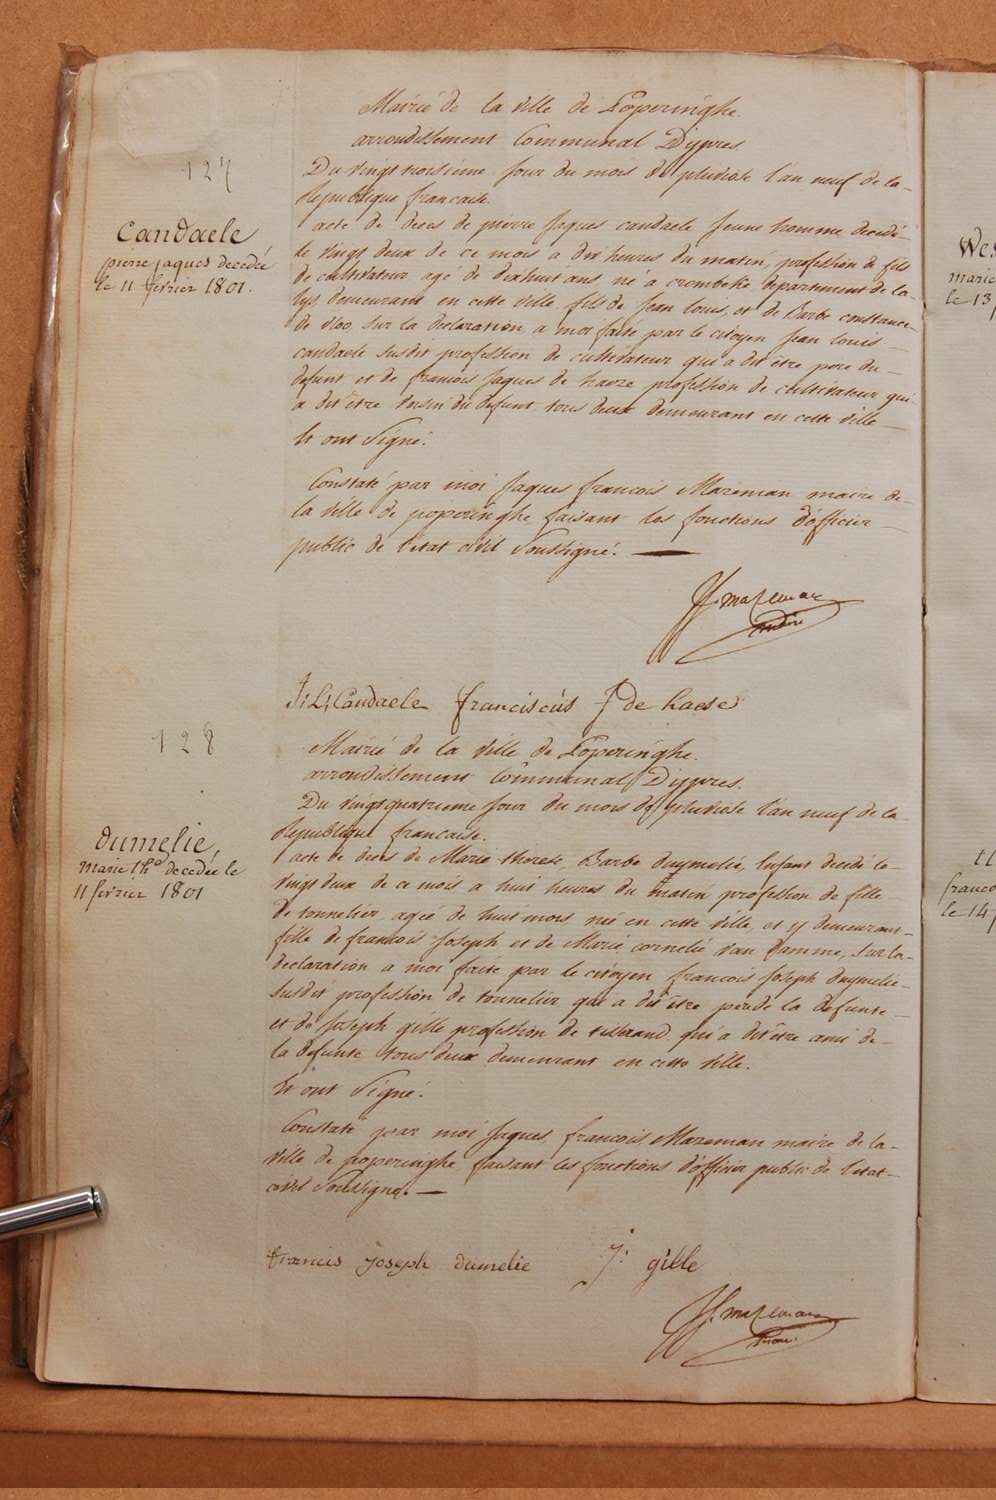 127
Mairie de la ville de Poperinghe.
arrondissement Communal Dypres
Du vingt troisieme jour du mois de pluviose l'an neuf de la-
Republique francaise.
Candaele
pierre jaques decedé
le 11 fevrier 1801.
acte de deces de pierre jaques candaele jeune homme decedé-
le vingt deux de ce mois a dix heures du matin, profession de fils
de cultivateur agé de dixhuit ans né a crombeke departement de la-
lys demeurant en cette ville fils de jean louis, et de Barbe constance-
de vloo, sur la declaration a moi faite par le citoyen jean louis
candaele susdit profession de cultivateur qui a dit être pere du-
defunt et de francois jaques de haeze profession de cultivateur qui-
a dit être voisin du defunt tous deux demeurant en cette ville
Et ont signé.
Constaté par moi jaques francois Mazeman maire de-
la ville de poperinghe faisant les fonctions d'officier
public de l'etat civil soussigné.
J.f. mazeman
maire
J: L: Candaele franciscus J de haese
128
Mairie de la ville de Poperinghe.
arrondissement Communal Dypres.
Du vingtquatrieme jour du mois de pluviose l'an neuf de la-
Republique francaise.
dumelie,
marie th.e decedée le
11 fevrier 1801
acte de deces de Marie therese, Barbe duymelié, Enfant decedé le-
vingt deux de ce mois a huit heures du matin profession de fille
de tonnelier, ageé de huit mois neé en cette ville, et y demeurant-
fille de francois joseph et de Marie cornelié van damme, sur la-
declaration a moi faite par le citoyen francois joseph duymelie-
susdit profession de tonnelier qui a dit être pere de la defunte
et de joseph gille profession de qui a dit être ami de-
la defunte tous deux demeurant en cette ville.
Et ont signé.
Constaté par moi jaques francois Mazeman maire de la-
ville de poperinghe faisant les fonctions d'officier public de l'etat-
civil soussigné.
francis joseph dumelie J: gille
J.f. mazeman
maire
marie
le 13
franco
le 14